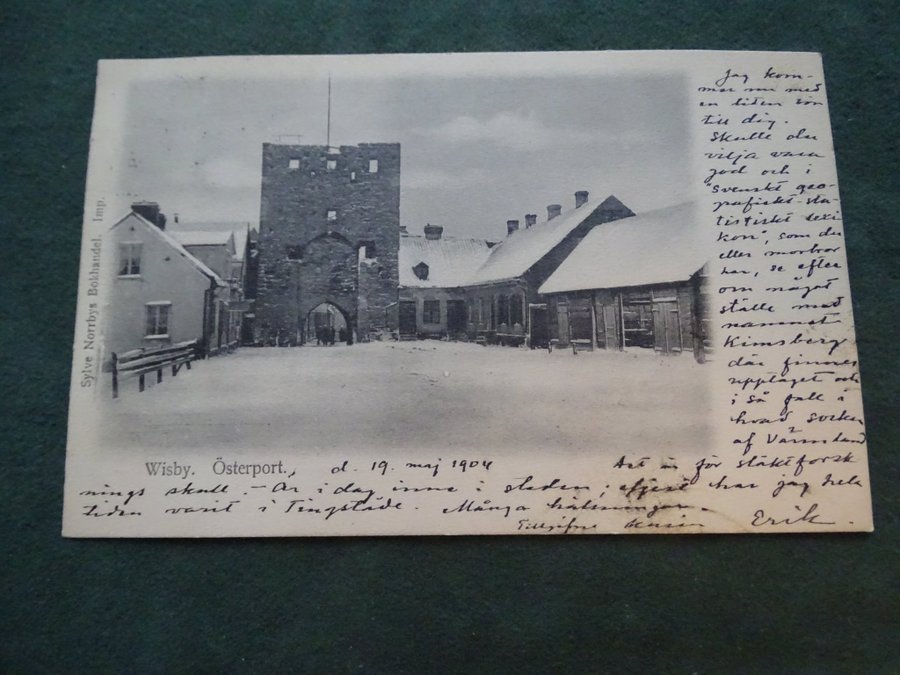 Sylve Norrbys Bokhandel. Imp.
Wisby. Österport.
d. 19. maj 1904
Jag kom-
mer nu med
en liten bön
till dig.
Skulle du
vilja vara
god och i
"Svenskt geo-
grafiskt-sta-
tistiskt lexi
kon", som du
eller morbror
har, se efter
om något
ställe med
namnet
Kimsberg
där finnes
upptaget och
i så fall i
hvad socken
af Värmland
Det är för släktforsk
nings skull. - Är i dag inne i staden; eljest har jag hela
tiden varit i Tingstäde. Många hälsningar.
Tillgifne kusin Erik.